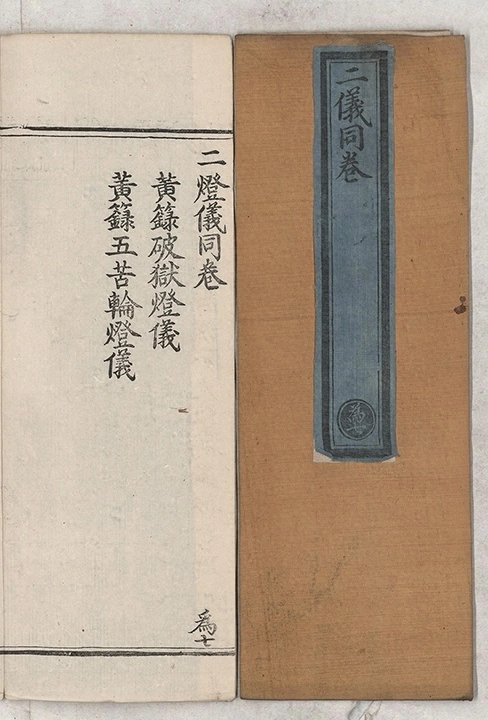 二儀同卷
為七
二燈儀同卷
黃籙破獄燈儀
黃籙五苦輪燈儀
為七